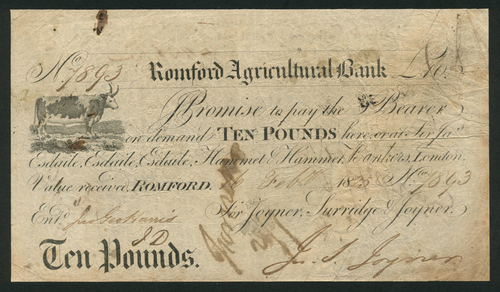 No 7893 Romford Agricultural Bank £10
I Promise to pay the Bearer
on demand TEN POUNDS here, or at Sir Jas.
Esdaile, Esdaile, Esdaile, Hammet & Hammet, Bankers, London.
Value received, ROMFORD. Feby 182 No 7893
Entd. For Joyner, Surridge & Joyner.
Ten Pounds. Jn. S. Joyner